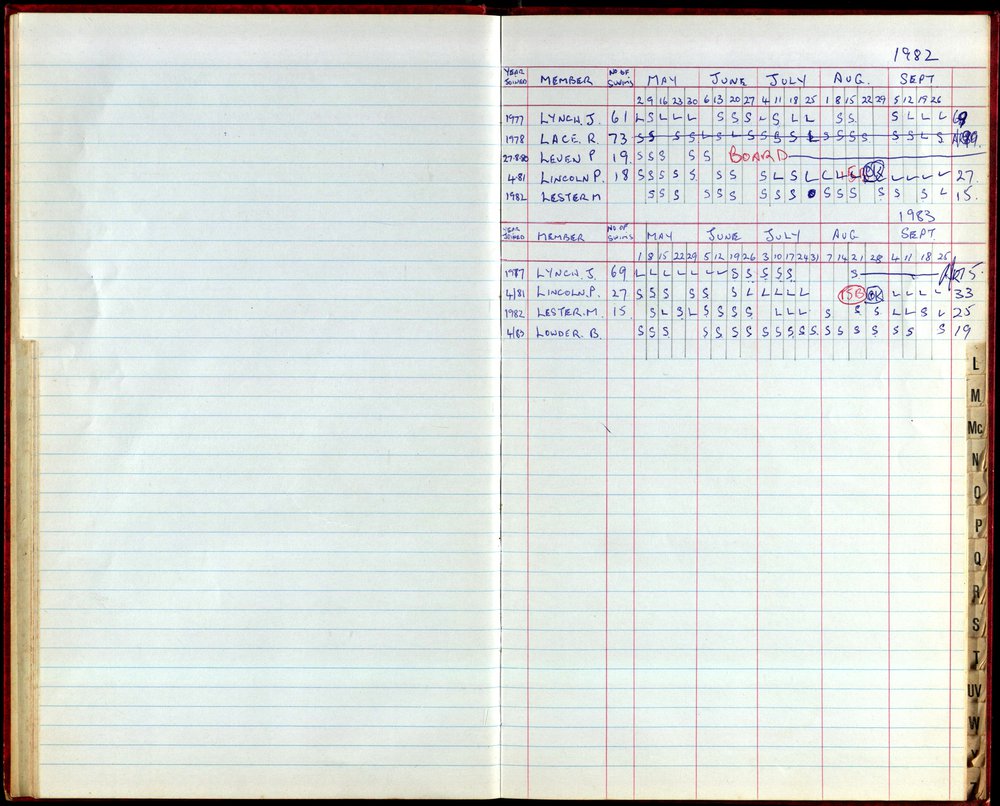 1982
YEAR JOINED MEMBER NO OF SWIMS MAY JUNE JULY AUG. SEPT
2 9 16 23 30 6 13 20 27 4 11 18 25 1 8 15 22 29 5 12 19 26
1977 LYNCH. J. 61 L S L L L S S S L S L L S S S L L L
1978 LACE. R. 73 S S S S L S L S S S S L S S S S S S L S
27.8.80 LEVEN P 19. S S S S S BOARD
4/81 LINCOLN P. 18 S S S S S S S S L S L L L OK L L L L 27.
1982 LESTER M S S S S S S S S S S S S S S S L 15.
1983
YEAR JOINED MEMBER NO OF SWIMS MAY JUNE JULY AUG SEPT.
1 8 15 22 29 5 12 19 26 3 10 17 24 31 7 14 21 28 4 11 18 25
LYNCH. J. 69 L L L L L L L S S S S S S
4/81 LINCOLN. P. 27 S S S S S S L L L L L OK L L L L 33
1982 LESTER. M. 15 S L S L S S S S L L L S S S L L S L 25
4/83 LOWDER. B. S S S S S S S S S S S S S S S S S S S S 19
L
M
Mc
N
O
P
Q
R
S
T
UV
W
Y
Z